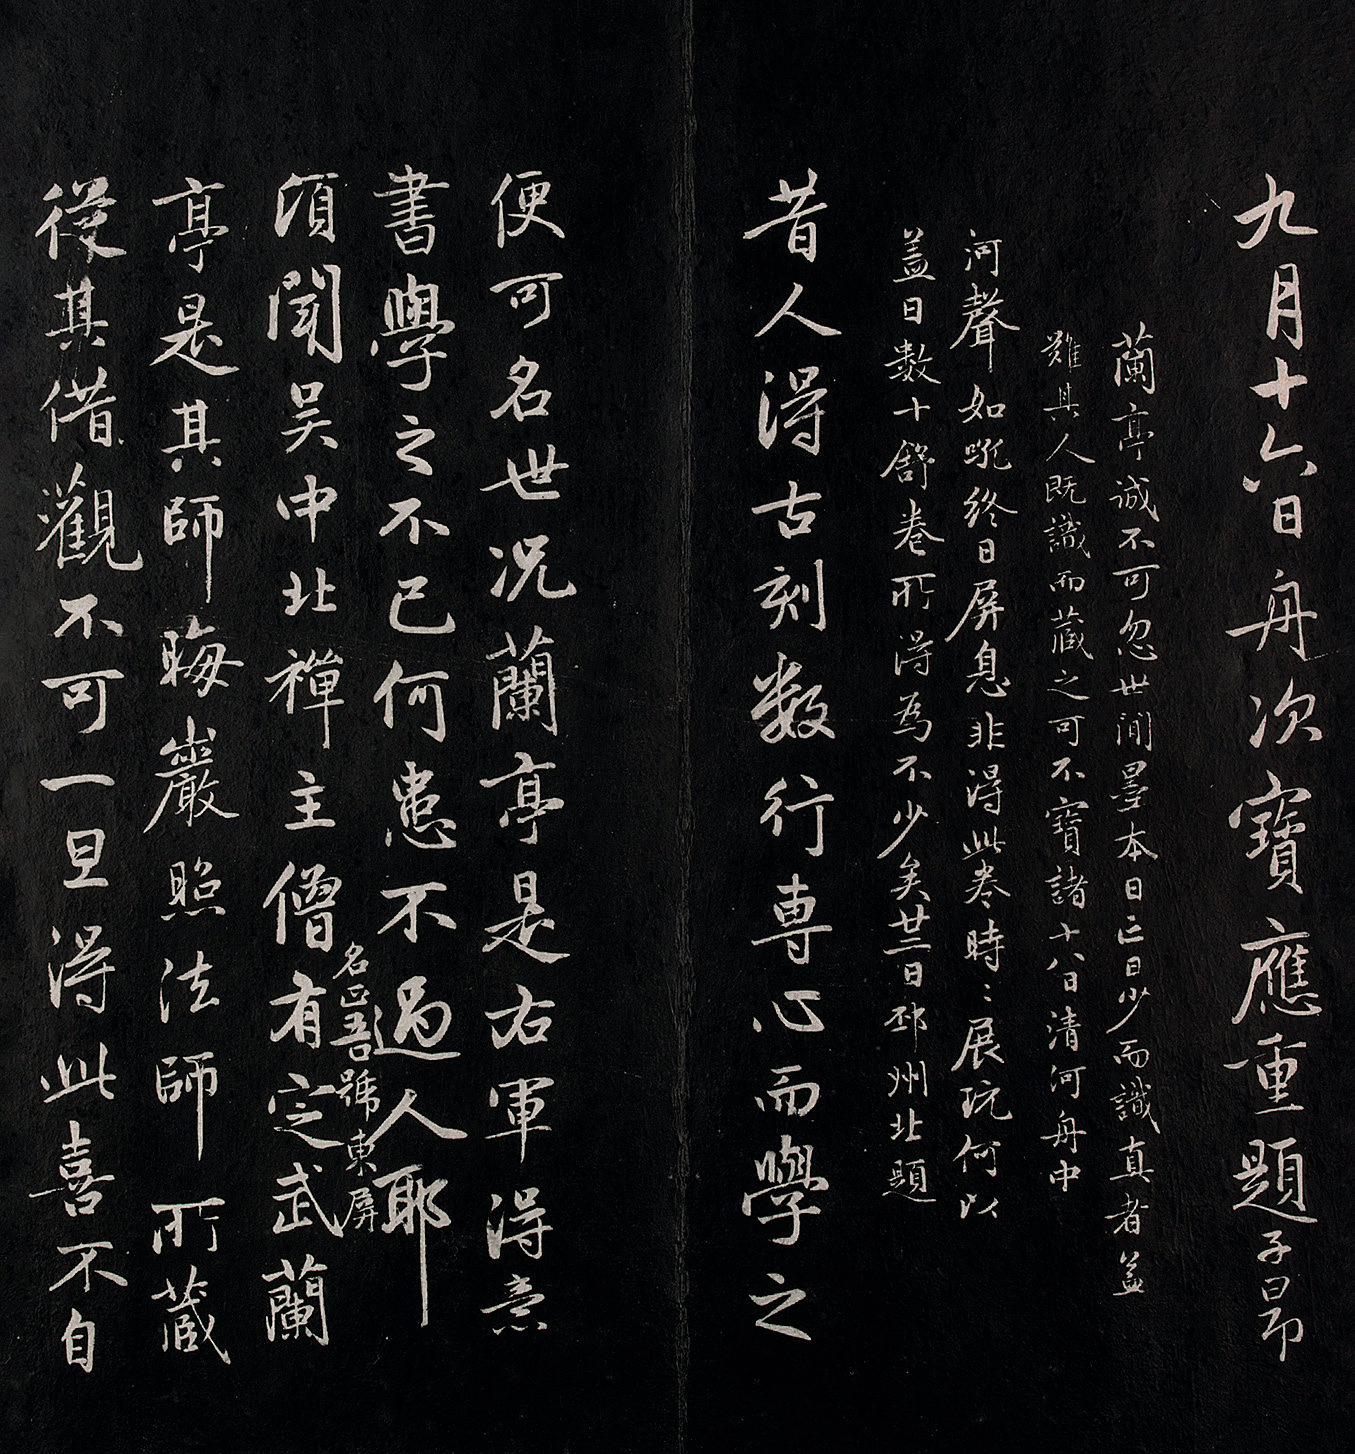 九月十六日舟次寶應重題子昂
蘭亭誠不可忽世間墨本日亡日少而識真者益
難其人既識而藏之可不寶諸十八日清河舟中
河聲如吼終日屏息非得此卷時〻展玩何以
盖日數十舒卷所得為不少矣廿二日邳州北題
昔人得古刻数行専心而學之
便可名世况蘭亭是右軍得意
書學之不已何患不過人耶
頃聞吴中北禪主僧名正吾號東屏有定武蘭
亭是其師晦巖照法師所藏
從其借觀不可一旦得此喜不自